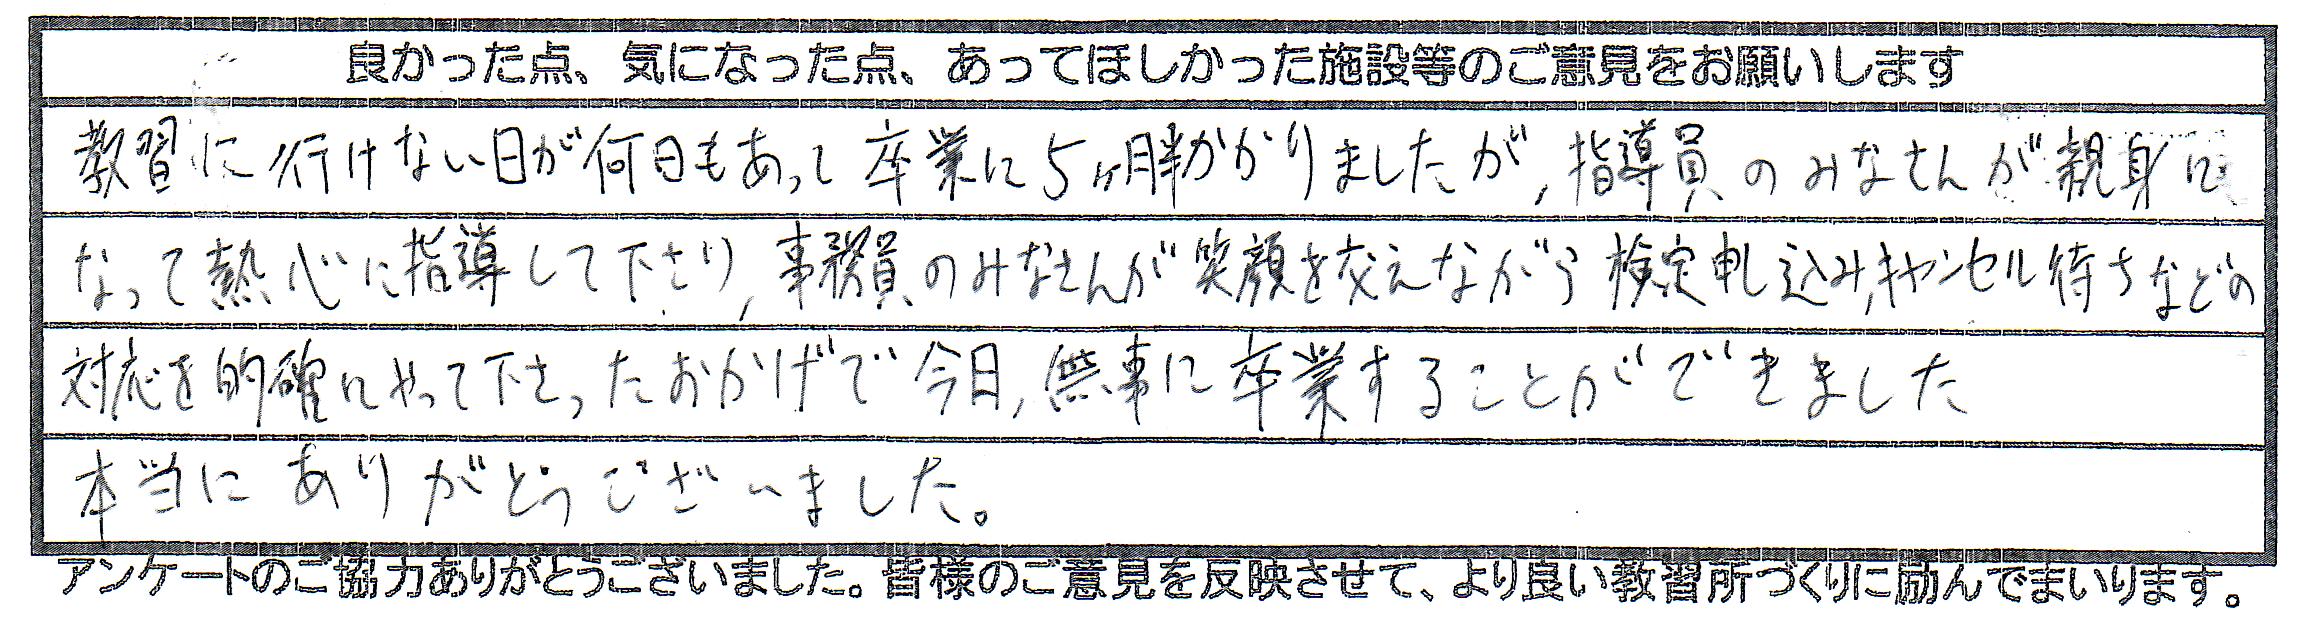 良かった点、気になった点、あってほしかった施設等のご意見をお願いします
教習に行けない日が何日もあって卒業に5ヶ月半かかりましたが,指導員のみなさんが親身に
なって熱心に指導して下さり,事務員のみなさんが笑顔を交えながら検定申し込み,キャンセル待ちなどの
対応を的確にやって下さったおかげで今日,無事に卒業することができました
本当にありがとうございました。
アンケートのご協力ありがとうございました。皆様のご意見を反映させて、より良い教習所づくりに励んでまいります。